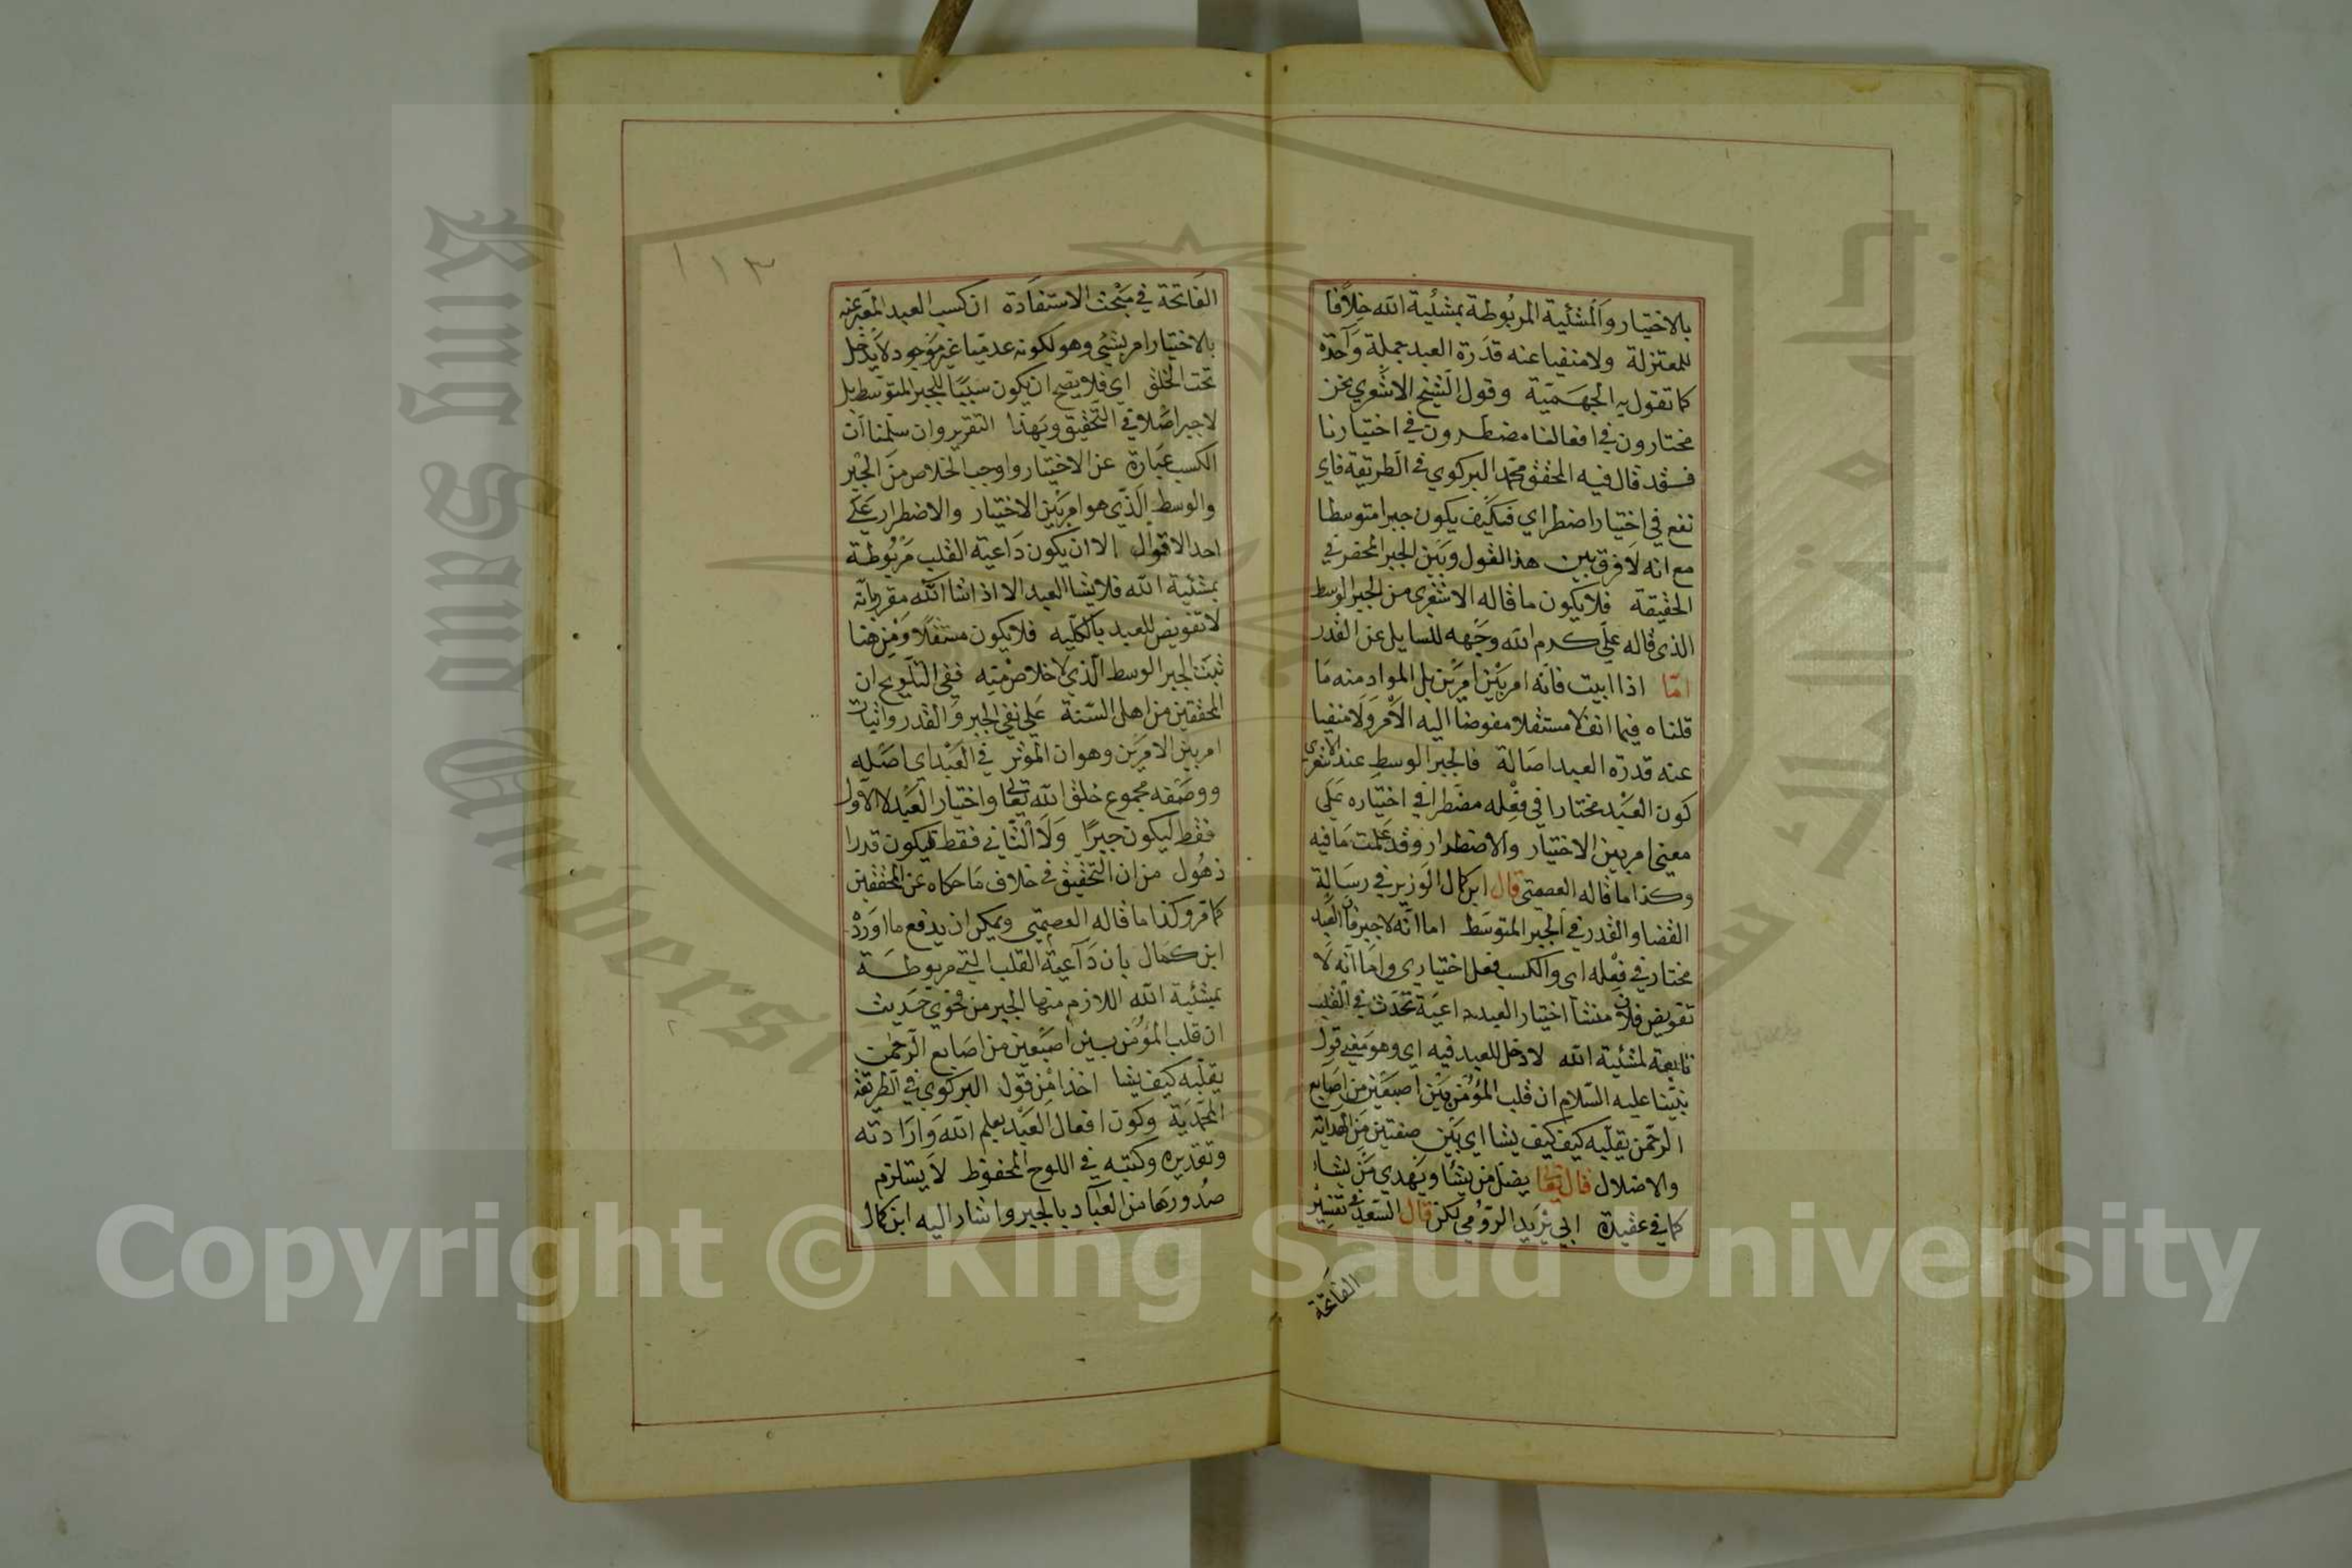 بالاختيار والمشئية المربوطة بمشئية الله خلافا
للمعتزلة ولا منفيا عنه قدرة العبد جملة واحدة
كما تقول به الجهمية وقول الشيخ الاشعري نحن
مختارون في افعالنا مضطرون في اختيارنا
فقد قال فيه المحقق محمد البركوي في الطريقة فاي
نفع في اختيار اضطراي فكيف يكون جبرا متوسطا
مع انه لا فرق بين هذا القول وبين الجبر المحض في
الحقيقة فلا يكون ما قاله الاشعري من الجبر الوسط
الذي قاله علي كرم الله وجهه للسايل عن القدر
اما اذا ابيت فانه امر بين امرين بل المراد منه ما
قلناه فيما انف لا مستقلا مفوضا اليه الامر ولا منفيا
عنه قدرة العبد اصالة فالجبر الوسط عند الاشعري
كون العبد مختارا في فعله مضطرا في اختياره على
معنى امر بين الاختيار والاضطرار وقد علمت ما فيه
وكذا ما قاله العصمتي قال ابن كمال الوزير في رسالة
القضا والقدر في الجبر المتوسط اما انه لا جبر فان العبد
مختار في فعله اي والكسب فعل اختياري واما انه لا
تفويض فلان منشأ اختيار العبد داعية تحدث في القلب
تابعة لمشئية الله لا دخل للعبد فيه اي وهو معنى قول
نبينا عليه السلام ان قلب المؤمن بين اصبعين من اصابع
الرحمن يقلبه كيف كيف يشا اي بين صفتين من الهداية
والاضلال قال تعالى يضل من يشا ويهدي من يشا
كما في عقيدة ابي يزيد الرومي لكن قال السعد في تفسير
الفاتحة
١١٣
الفاتحة في مبحث الاستفادة ان كسب العبد المعبر عنه
بالاختيار امر بشيئ وهو لكونه عدميا غير موجود لا يدخل
تحت الخلق اي فلا يصح ان يكون سببا للجبر المتوسط بل
لا جبر اصلا في التحقيق وبهذا التقرير وان سلمنا ان
الكسب عبارة عن الاختيار واوجب الخلاص من الجبر
والوسط الذي هو امر بين الاختيار والاضطرار على
احد الاقوال الا ان يكون داعية القلب مربوطة
بمشئية الله فلا يشا العبد الا اذا شا الله مقر بانه
لا تفويض للعبد بالكليه فلا يكون مستقلا ومن هنا
ثبت الجبر الوسط الذي لا خلاص منه ففي التلويح ان
المحققين من اهل السنة على نفي الجبر والقدر واثبات
امر بين الامرين وهو ان المؤثر في العبد اي اصله
ووصفه مجموع خلق الله تعالى واختيار العبد لا الاول
فقط ليكون جبرا ولا الثاني فقط ليكون قدرا
ذهول من ان التحقيق في خلاف ما حكاه عن المحققين
كما مر وكذا ما قاله العصمتي ويمكن ان يدفع ما اورده
ابن كمال بان داعية القلب التي مربوطة
بمشئية الله اللازم منها الجبر من فحوى حديث
ان قلب المؤمن بين اصبعين من اصابع الرحمن
يقلبه كيف يشا اخذا من قول البركوي في الطريقة
المحمدية وكون افعال العبد بعلم الله وارادته
وتقديره وكتبه في اللوح المحفوظ لا يستلزم
صدورها من العباد بالجبر واشار اليه ابن كمال
King Saud University
Copyright © King Saud University